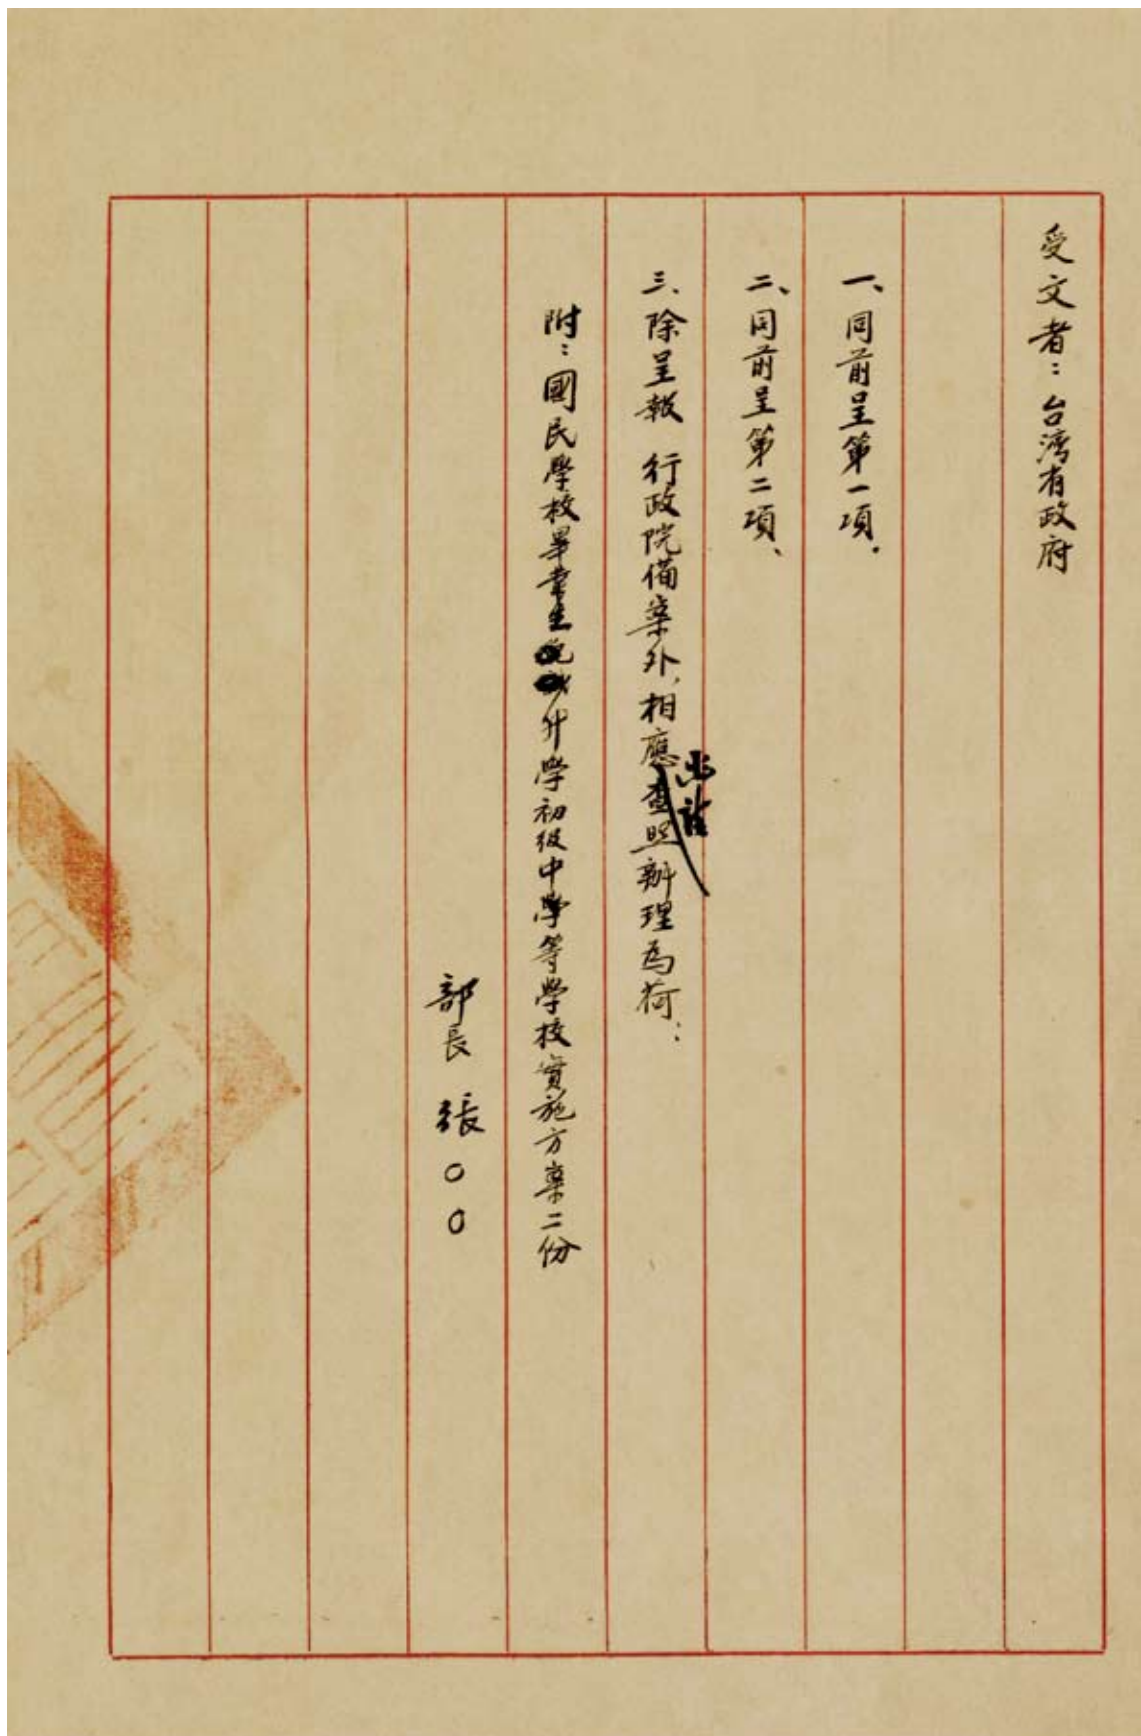 受文者：台湾省政府
一、同前呈第一項.
二、同前呈第二項、
三、除呈報 行政院備案外,相應函請查照辦理為荷：
附：國民學校畢業生升學初級中學等學校實施方案二份
部長 張〇〇